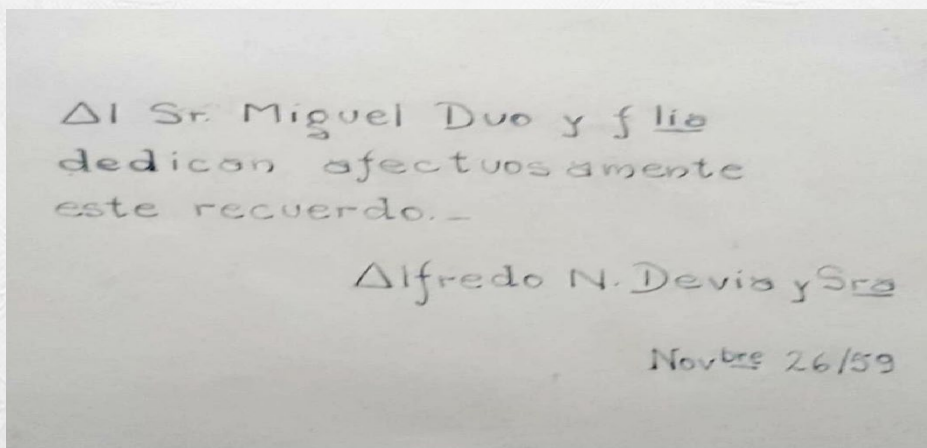 Al Sr. Miguel Duo y flia
dedican afectuosamente
este recuerdo.-
Alfredo N. Devia y Sra
Novbre 26/59